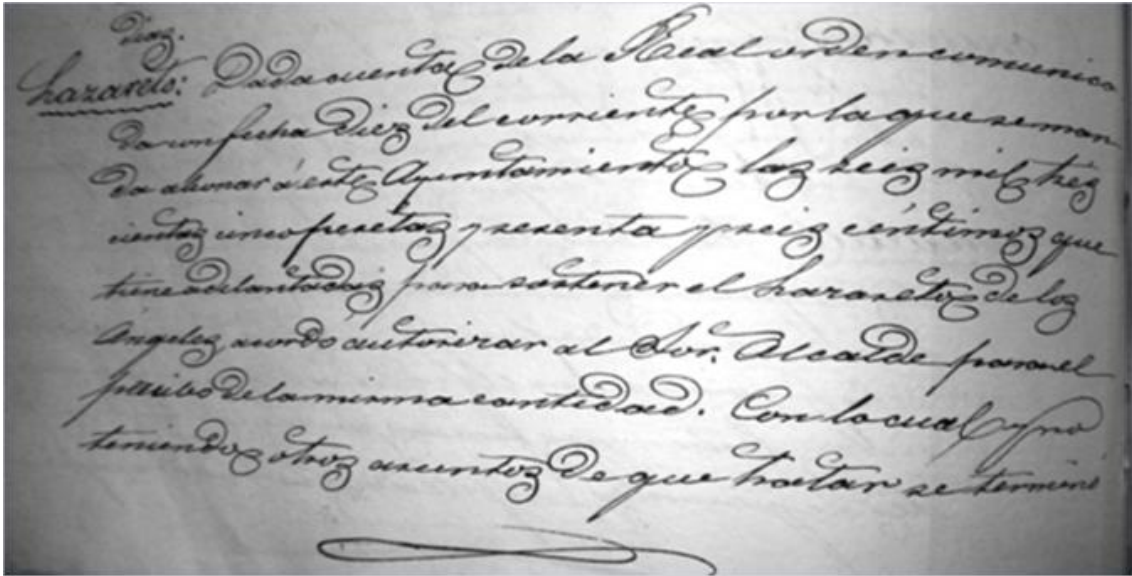 dias.
Lazareto: Dada cuenta de la Real orden comunica
da con fecha diez del corriente por la que se man
da abonar á este Ayuntamiento las seis mil tres
cientas cinco pesetas y sesenta y seis céntimos que
tiene adelantadas para sostener el Lazareto de los
Ángeles acordo autorizar al Sor. Alcalde para el
percibo de la misma cantidad. Con lo cual y no
teniendo otros asuntos de que tratar se terminó